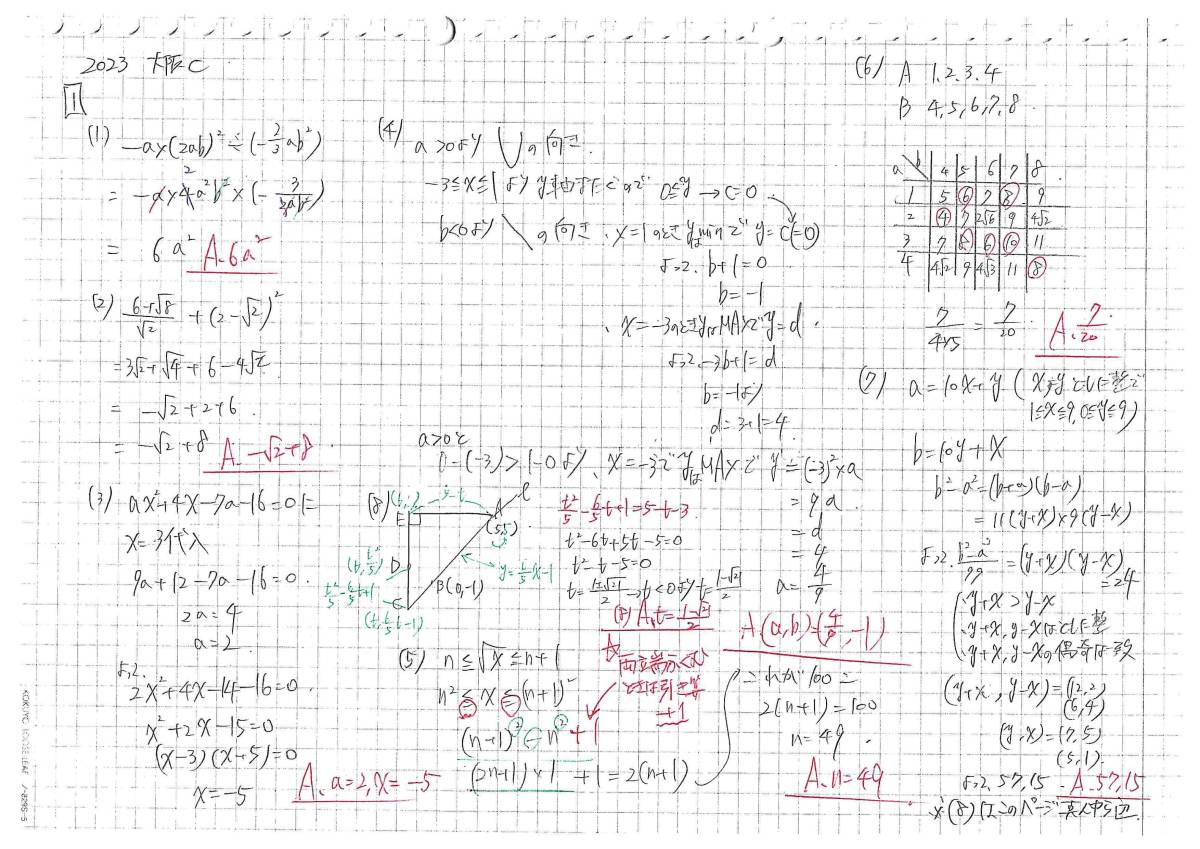 2023 大阪C
1
(1) -a×(2ab)² ÷ (-2/3 ab²)
= -a×4a²b² × (-3/2ab²)
= 6a² A. 6a²
(2) (6+√8)/√2 + (2-√2)²
= 3√2+√4+6-4√2
= -√2+2+6
= -√2+8 A. -√2+8
(3) ax²+4x-7a-16=0に
x=-3代入
9a+12-7a-16=0.
2a=4
a=2
よって.
2x²+4x-14-16=0
x²+2x-15=0
(x-3)(x+5)=0
x=-5
A. a=2, x=-5
(4) a>0より の向き.
-3≦x≦1より y軸またぐので 0≦y → c=0
b<0より の向き. x=1のときyはminで y=c(=0)
よって. b+1=0
b=-1
x=-3のときyはMAXで y=d.
よって. -3b+1=d
b=-1より
d=3+1=4.
a>0で
0-(-3)>1-0より、x=-3で yはMAXで y=(-3)²×a
=9a
=d
=4
a=4/9
A. (a,b)=(4/9, -1)
(8)
E
A
ℓ
(5,5)
D
B(0,-1)
C
5-t
y=6/5x-1
t²/5-6/5t+1
(t, 6/5t-1)
t²/5-6/5t+1=5-t-3
t²-6t+5t-5=0
t²-t-5=0
t=(1±√21)/2 → t<0より t=(1-√21)/2
(8) A. t=(1-√21)/2
(5) n≦√x≦n+1
n²≦x≦(n+1)²
(n+1)²-n²+1
(2n+1)×1+1=2(n+1)
両立端含む
ときは引き算
+1
これが100に
2(n+1)=100
n=49.
A. n=49
(6) A 1.2.3.4
B 4,5,6,7,8.
a b 4 5 6 7 8
1 5 6 7 8 9
2 4 7 2√6 9 4√2
3 7 8 6 10 11
4 4√2 9 4√3 11 8
7/4×5 = 7/20 A. 7/20
(7) a=10x+y (x,yともに整で
1≦x≦9, 0≦y≦9)
b=10y+x
b²-a²=(b+a)(b-a)
=11(y+x)×9(y-x)
よって. (b²-a²)/99=(y+x)(y-x)
=24
・y+x>y-x
・y+x, y-xはともに整
・y+x, y-xの偶奇は一致
(y+x, y-x)=(12,2)
(6,4)
(y,x)=(7,5)
(5,1)
よって. 57,15 A. 57,15
※(8)はこのページ真ん中ら辺.
KOKUYO LOOSE-LEAF